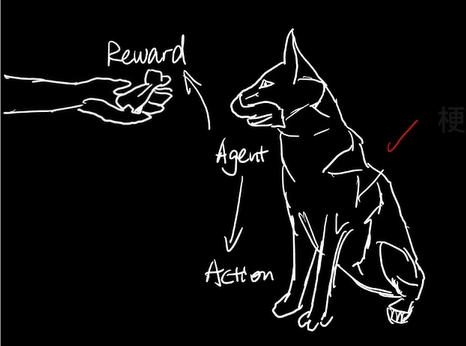 Reward
Agent
Action
梗